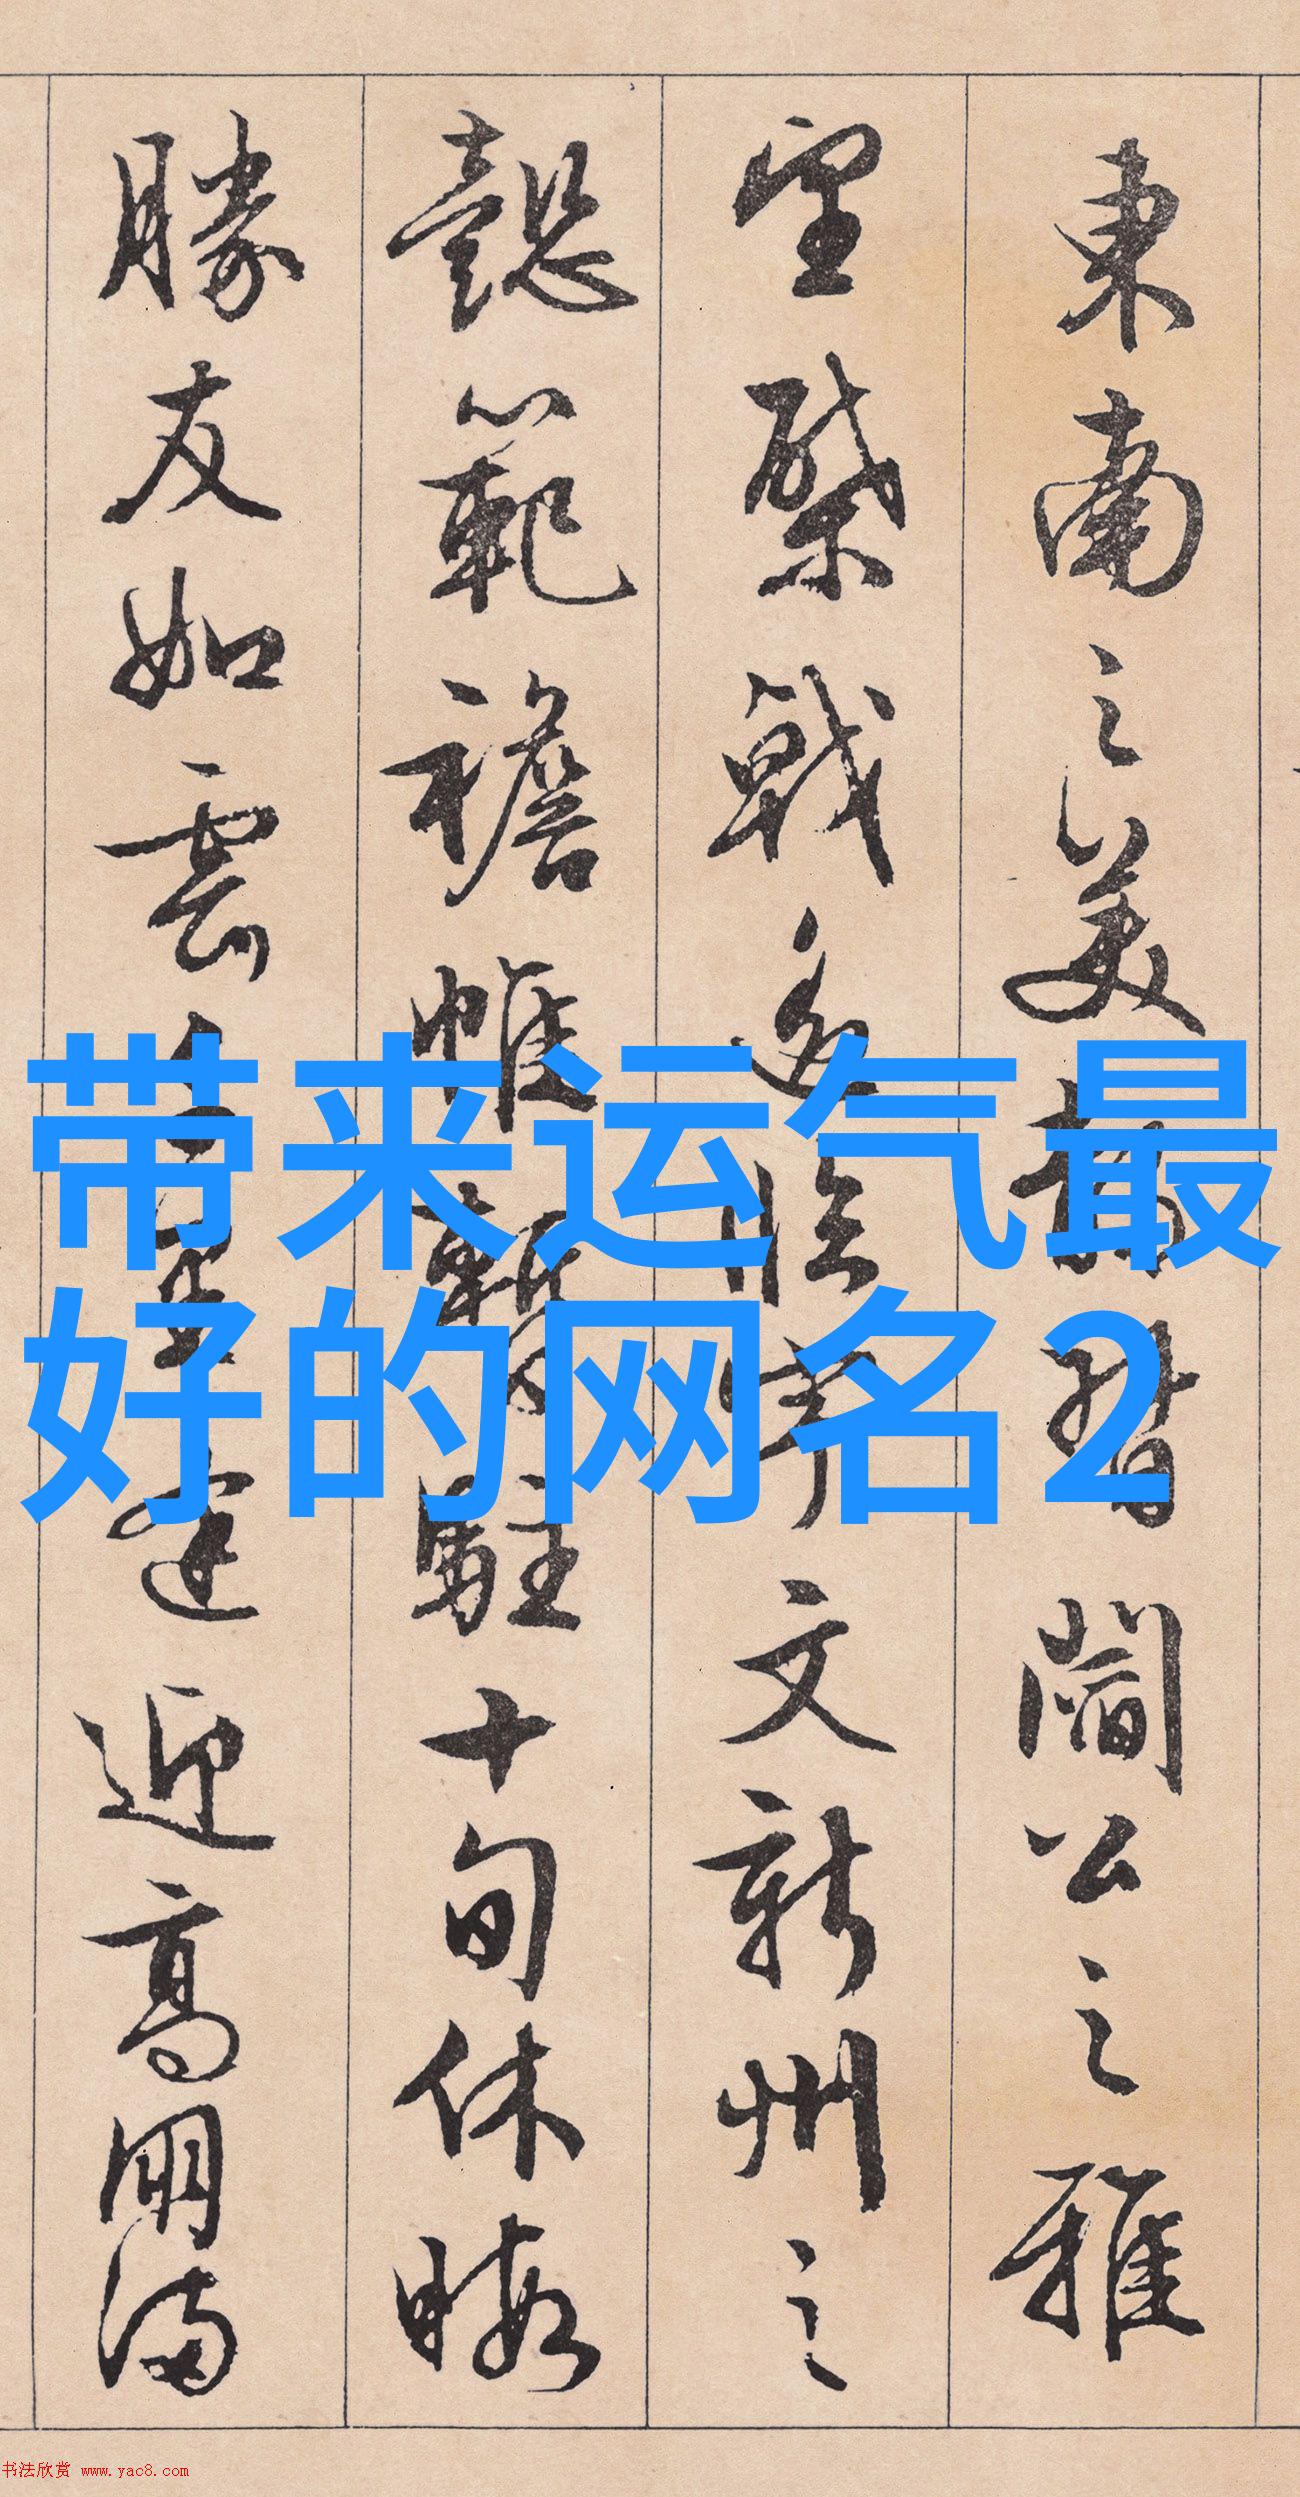 東南之美都督閻公之雅
望棨戟遙臨宇文新州之
懿範襜帷暫駐十旬休暇
勝友如雲千里逢迎高朋滿
带来运气最
好的网名2
书法欣赏 www.yac8.com